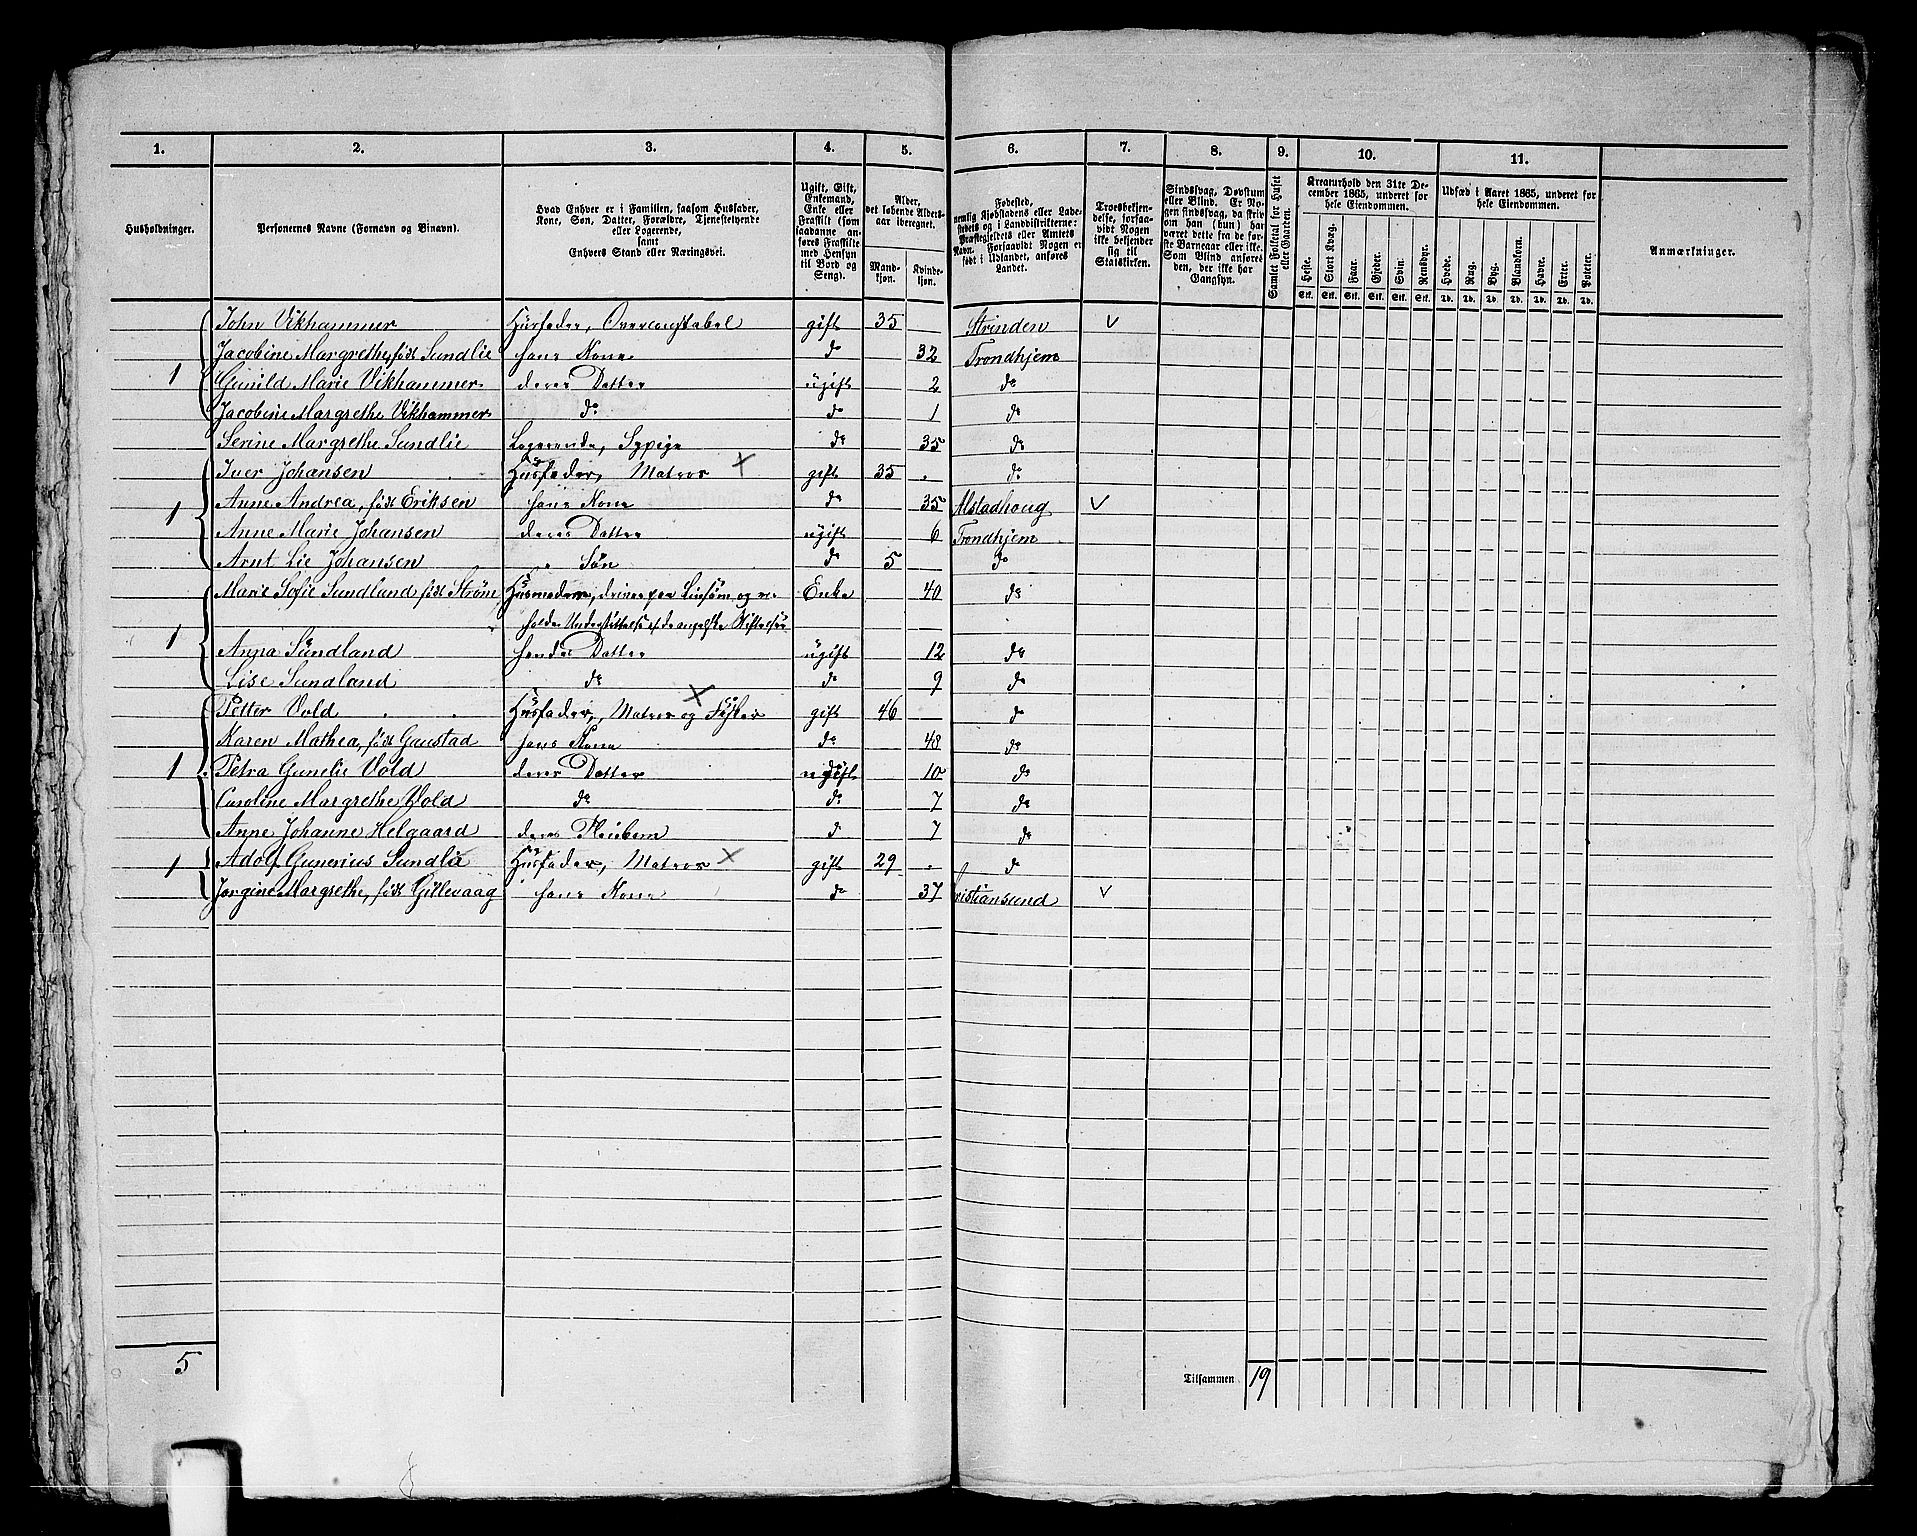 1. 2. 3. 4. 5. 6. 7. 8. 9. 10. 11.
Husholdninger.
Personernes Navne (Fornavn og Binavn).
Hvad Enhver er i Familien, saasom Husfader,
Kone, Søn, Datter, Forældre, Tjenestetyende
eller Logerende,
samt
Enhvers Stand eller Næringsvei.
Ugift, Gift,
Enkemand,
Enke eller
Fraskilt (som
saadanne an-
føres Fraskilte
med Hensyn
til Bord og
Seng).
Alder,
det løbende Alders-
aar iberegnet.
Mand-
kjøn.
Kvinde-
kjøn.
Fødested,
nemlig Kjøbstadens eller Lade-
stedets og i Landdistrikterne:
Præstegjeldets eller Amtets
Navn. Forsaavidt Nogen er
født i Udlandet, anføres
Landet.
Troesbekjen-
delse, forsaa-
vidt Nogen
ikke bekjender
sig til
Statskirken.
Sindssvag, Døvstum
eller Blind. Er No-
gen sindssvag, da skriv
om han (hun) har
været dette fra de før-
ste Barneaar eller ikke.
Som Blind anføres
den, der ikke har
Gangsyn.
Samlet Folketal for Huset
eller Gaarden.
Kreaturhold den 31te De-
cember 1865, underet for
hele Eiendommen.
Heste. Stort Kvæg. Faar. Gjeder. Svin. Rensdyr.
Stk. Stk. Stk. Stk. Stk. Stk.
Udsæd i Aaret 1865, underet for
hele Eiendommen.
Hvede. Rug. Byg. Blandkorn. Havre. Erter. Poteter.
Td. Td. Td. Td. Td. Td. Td.
Anmærkninger.
John Vikhammer Husfader, Overconstabel gift 35 Strinden
Jacobine Margrethe, født Sundlie hans Kone do 32 Trondhjem
1 Gunild Marie Vikhammer deres Datter ugift 2 do
Jacobine Margrethe Vikhammer do do 1 do
Serine Margrethe Sundlie Logerende, Sypige do 35 do
Iver Johansen Husfader, Matros gift 35 do
1 Anne Andrea, født Eriksen hans Kone do 35 Alstadhoug
Anne Marie Johansen deres Datter ugift 6 Trondhjem
Arnt Lie Johansen " Søn do 5 do
Marie Sofie Sundland født Strøm Husmoder, Linsøm og Enke 40 do
1 holder Understøttelse af
Anna Sundland hendes Datter ugift 12 do
Lise Sundland do do 9 do
Petter Vold Husfader, Matros og Fisker gift 46 do
Karen Mathea, født Gaustad hans Kone do 48 do
1 Petra Gunelie Vold deres Datter ugift 10 do
Caroline Margrethe Vold do do 7 do
Anne Johanne Helgaard deres Pleiebarn do 7 do
1 Adolf Gunerius Sundlie Husfader, Matros gift 29 do
Jørgine Margrethe, født Gillevaag hans Kone do 37 Kristiansund
5
Tilsammen 19